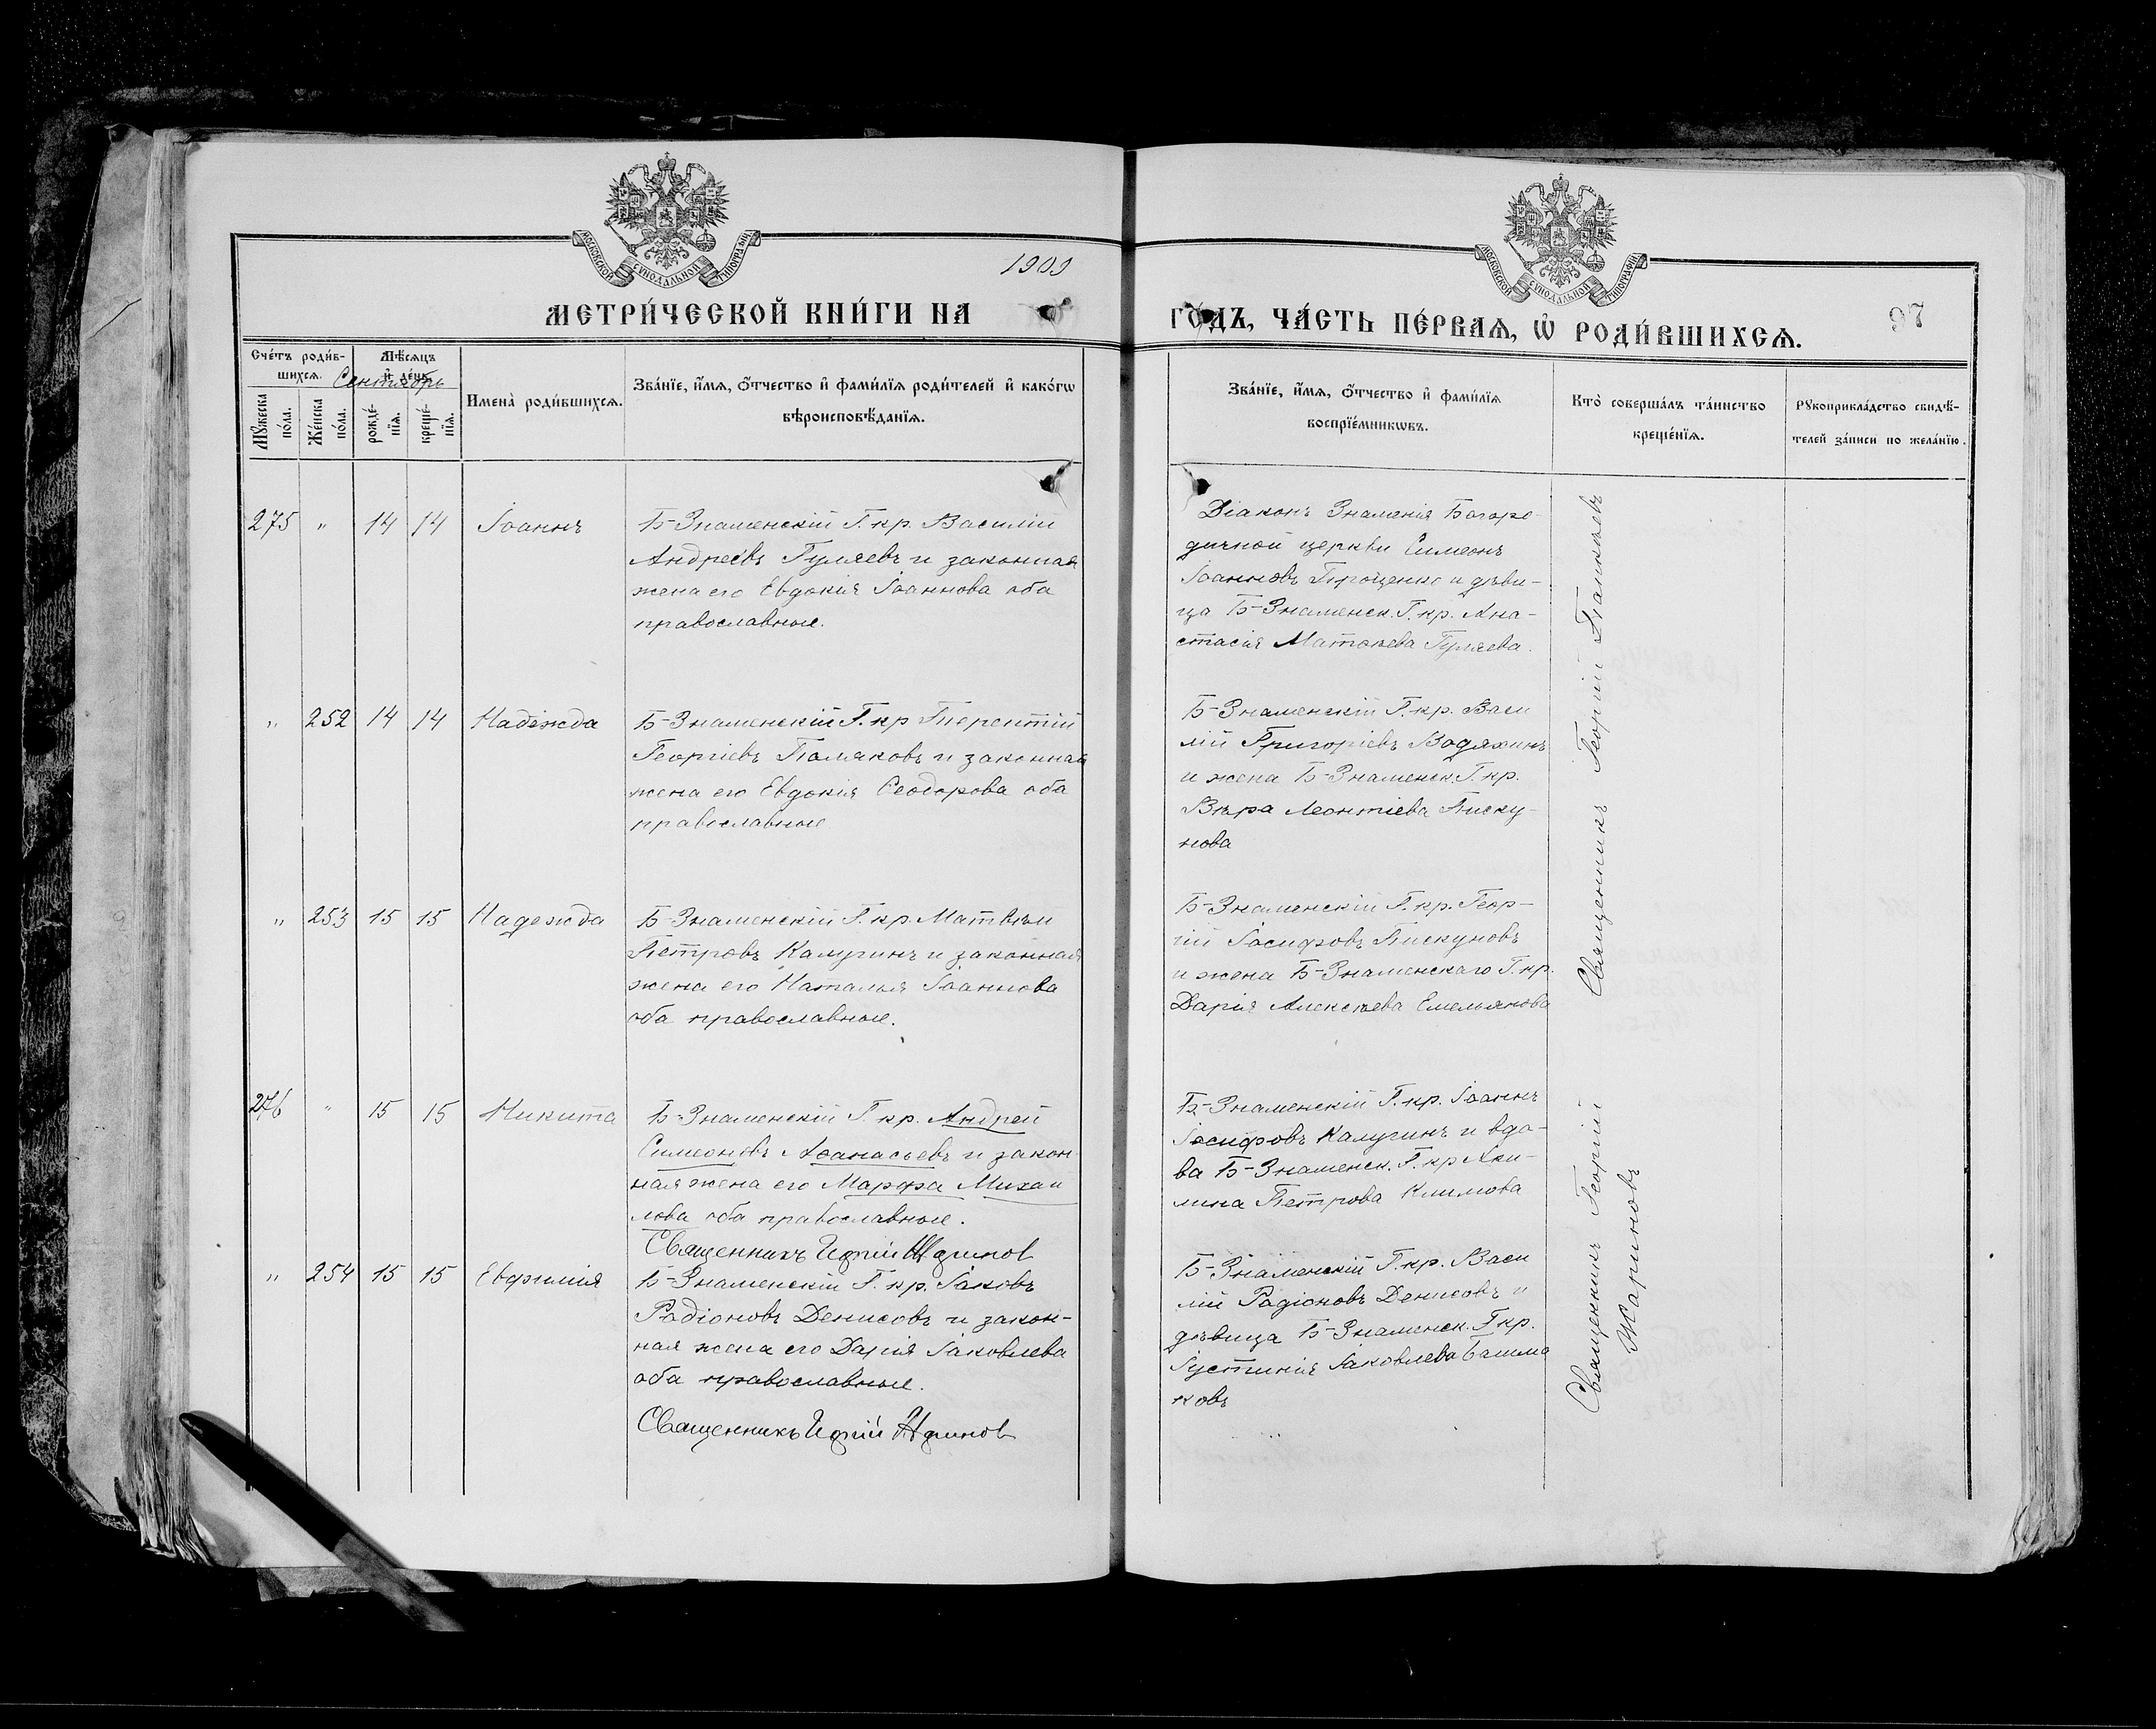 МОСКОВСКОЙ СѴНОДАЛЬНОЙ ТИПОГРАФІИ
МОСКОВСКОЙ СѴНОДАЛЬНОЙ ТИПОГРАФІИ
1909
МЕТРИ́ЧЕСКОЙ КНИ́ГИ НА
ГО́ДЪ, ЧА́СТЬ ПЕ́РВАѦ, Ѽ РОДИ́ВШИХСѦ.
97
Сче́тъ роди́в-
шихсѧ.
Мѣ́сѧцъ
и҆ де́нь
Сентябрь
Мꙋ́жеска по́ла.
Же́нска по́ла.
рожде́-нїѧ.
креще́-нїѧ.
И҆мена̀ роди́вшихсѧ.
Зва́нїе, и҆́мѧ, ѻ҆́тчество и҆ фами́лїѧ роди́телей и҆ како́гѡ
вѣроисповѣ́данїѧ.
Зва́нїе, и҆́мѧ, ѻ҆́тчество и҆ фами́лїѧ
воспрїе́мникѡвъ.
Кто̀ соверша́лъ та́инство
креще́нїѧ.
Рꙋкоприкла́дство свидѣ́-
телей за́писи по жела́нїю.
275 " 14 14 Іоаннъ
Б-Знаменскій Г. кр. Василій
Андреевъ Гуляевъ и законная
жена его Евдокія Іоаннова оба
православные.
Діаконъ Знаменія Богоро-
дичной церкви Симеонъ
Іоанновъ Прощенко и дѣви-
ца Б-Знаменск. Г. кр. Ана-
стасія Матѳеева Гуляева.
" 252 14 14 Надежда
Б-Знаменскій Г. кр Терентій
Георгіевъ Поляковъ и законная
жена его Евдокія Ѳеодорова оба
православные
Б-Знаменскій Г. кр. Васи
лій Григоріевъ Водяхинъ
и жена Б-Знаменск. Г. кр.
Вѣра Леонтіева Писку-
нова
" 253 15 15 Надежда
Б-Знаменскій Г. кр. Матвѣй
Петровъ Калугинъ и законная
жена его Наталья Іоаннова
оба православные.
Б-Знаменскій Г. кр. Геор-
гій Іосифовъ Пискуновъ
и жена Б-Знаменскаго Г. кр.
Дарія Алексѣева Емельянова
Священникъ Георгій Панкаевъ
276 " 15 15 Никита
Б-Знаменскій Г. кр. Андрей
Симеоновъ Аѳанасьевъ и закон
ная жена его Марфа Михаи
лова оба православные.
Священникъ Георгій Жаринов
Б-Знаменскій Г. кр. Іоаннъ
Іосифовъ Калугинъ и вдо-
ва Б-Знаменск. Г. кр Аки-
лина Петрова Климова
" 254 15 15 Евфимія
Б-Знаменскій Г. кр. Іаковъ
Радіоновъ Денисовъ и закон-
ная жена его Дарія Іаковлева
оба православные.
Священникъ Георгій Жаринов
Б-Знаменскій Г. кр. Васи
лій Радіоновъ Денисовъ и
дѣвица Б-Знаменск. Г кр.
Іустинія Іаковлева Башма
ковъ
Священникъ Георгій
Жариновъ